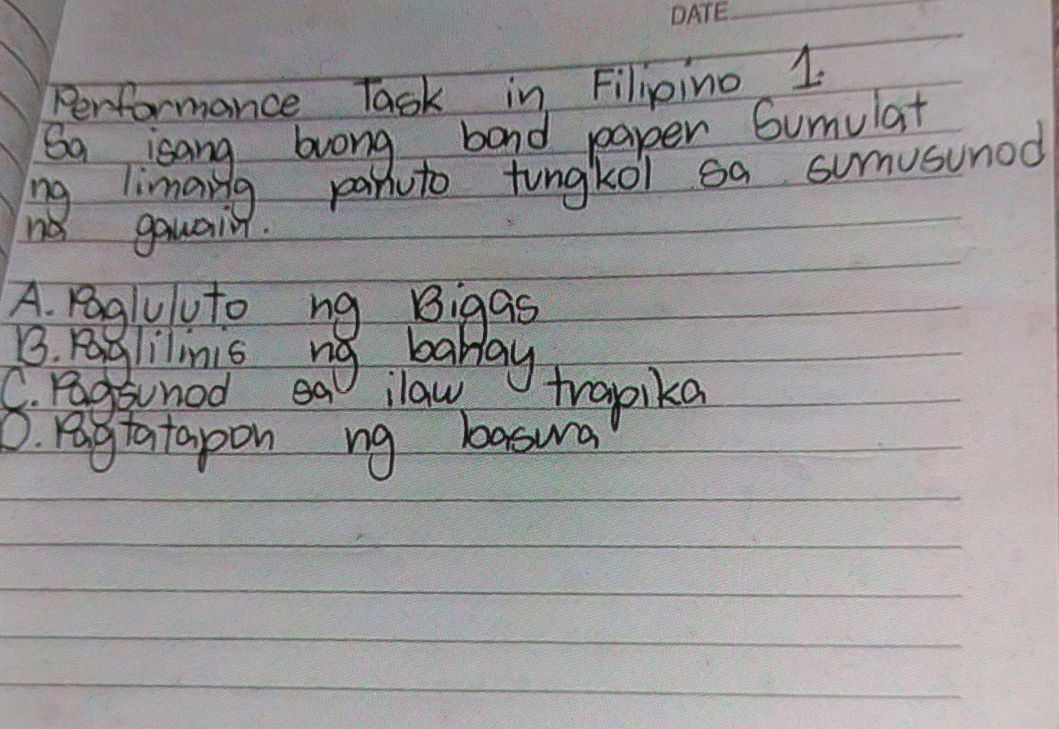 DATE
Performance Task in Filipino 1.
Sa isang buong bond paper Sumulat
ng limang panuto tungkol sa sumusunod
na gawain.
A. Pagluluto ng Bigas
B. Paglilinis ng bahay
C. Pagsunod sa ilaw trapika
D. Pagtatapon ng basura